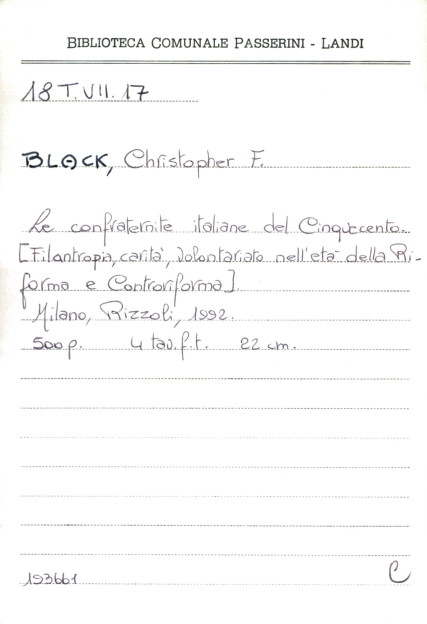 BIBLIOTECA COMUNALE PASSERINI - LANDI
18 T.VII.17
BLACK, Christopher F.
Le confraternite italiane del Cinquecento.
[Filantropia, carità, volontariato nell'età della Ri-
forma e Controriforma].
Milano, Rizzoli, 1992.
500 p. 4 tav.f.t. 22 cm.
193661 C